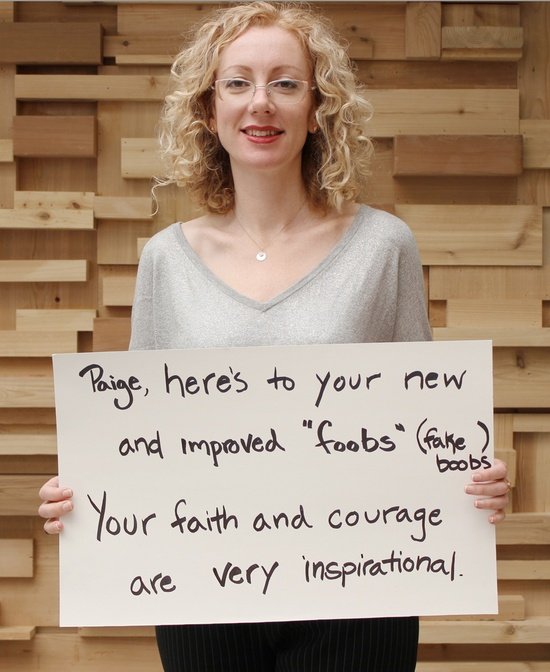 Paige, here's to your new
and improved "foobs" (fake boobs)
Your faith and courage
are very inspirational.